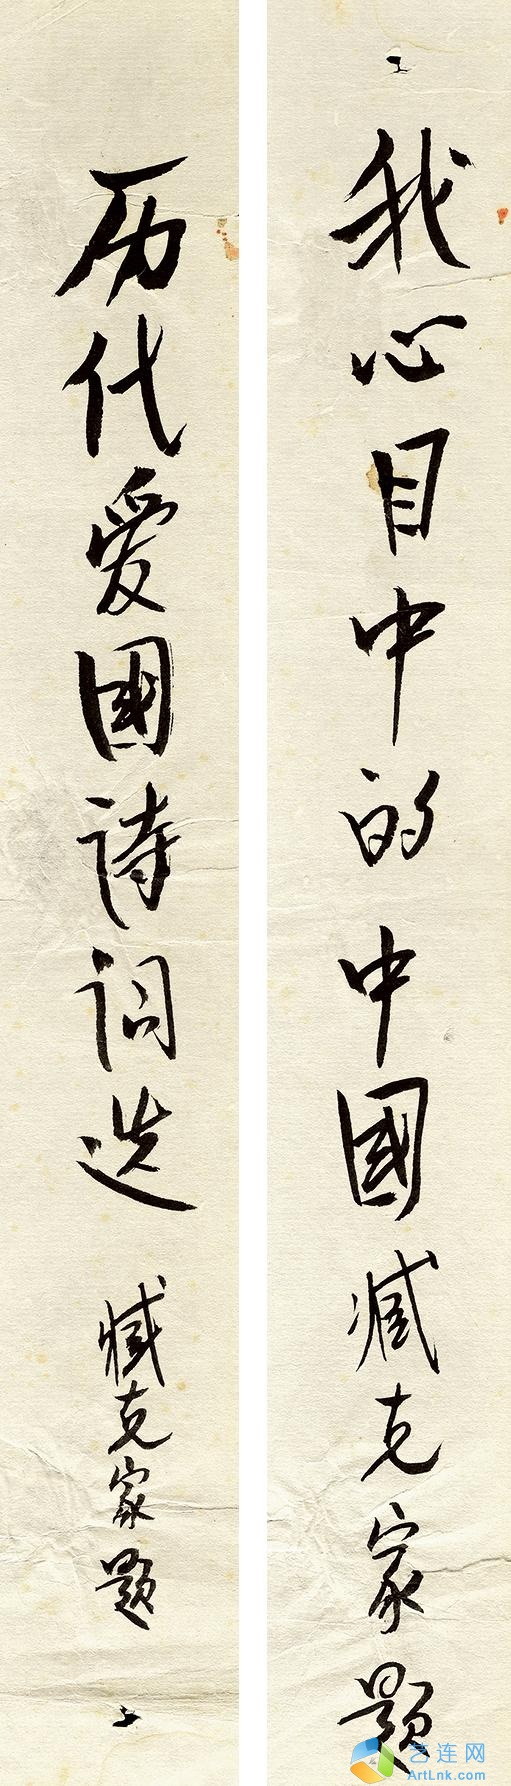 我心目中的中國 臧克家題
历代爱國詩詞选 臧克家题
艺连网
ArtLnk.com